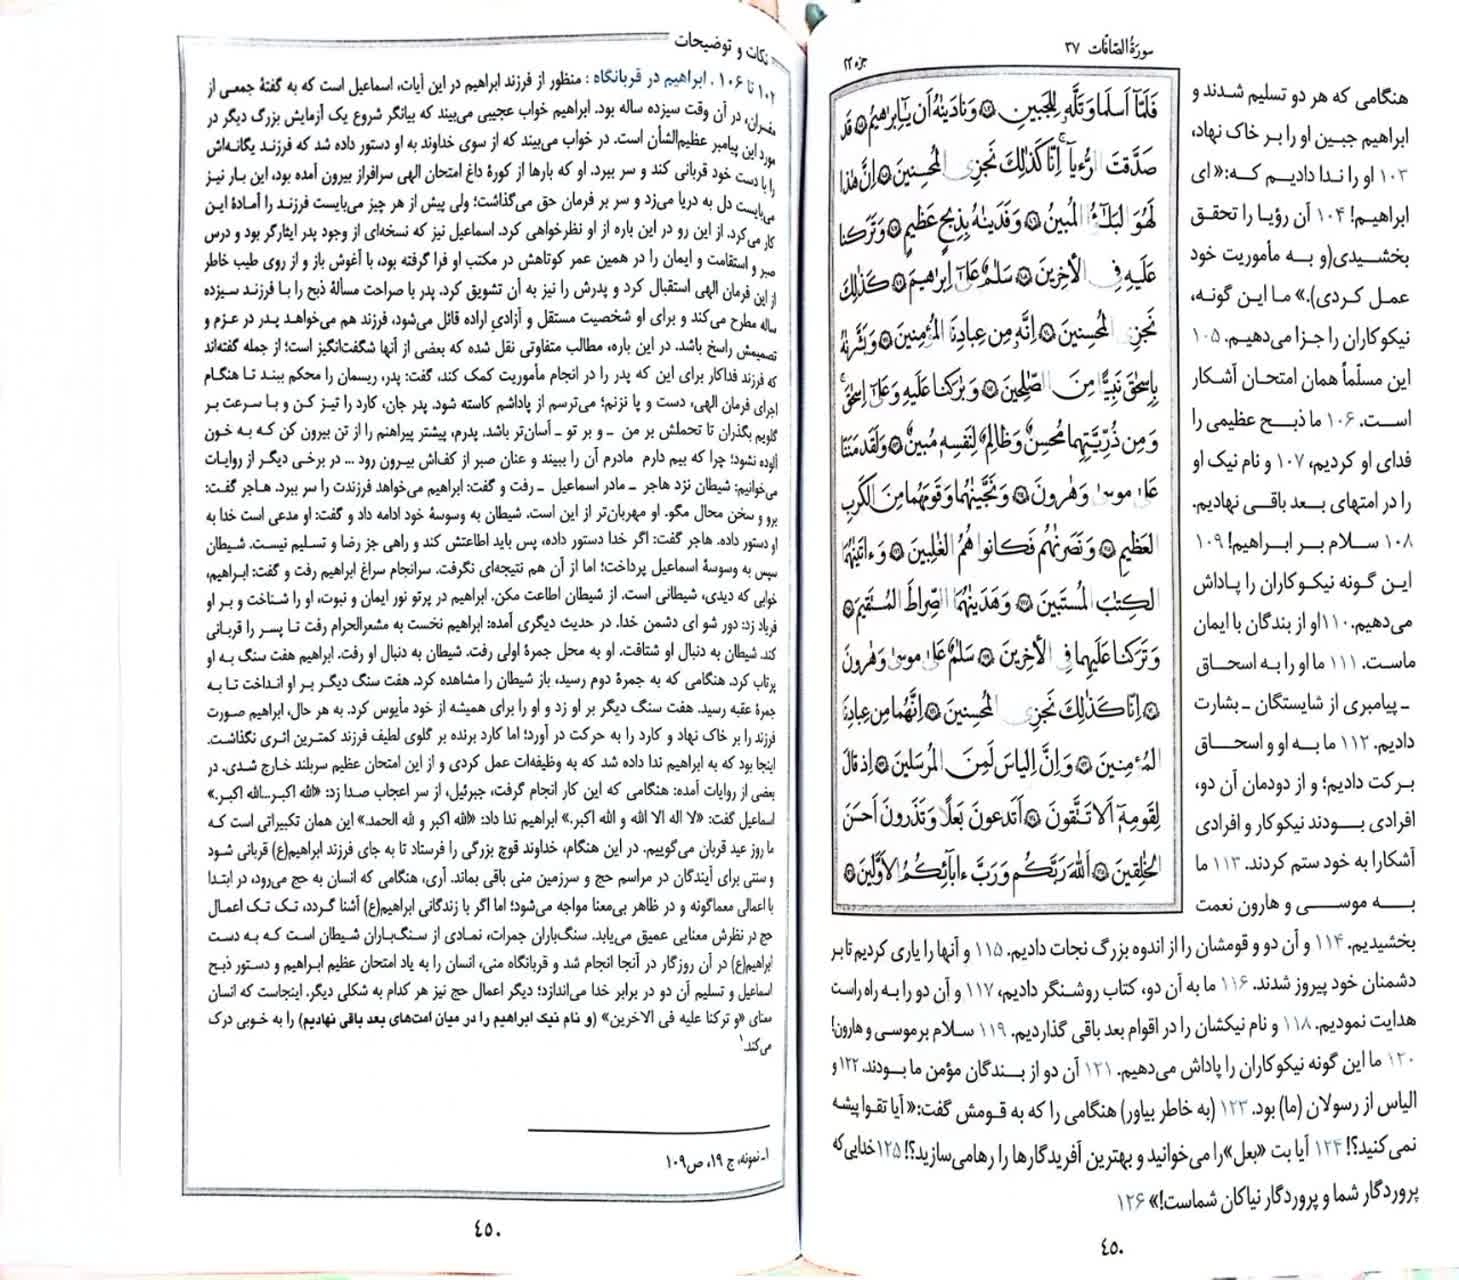 سورَةُ الصّافّات ٣٧
جزء ٢٣
فَلَمّا أَسلَما وَتَلَّهُ لِلجَبينِ ۝ وَنادَيناهُ أَن يا إِبراهيمُ ۝ قَد
صَدَّقتَ الرُّءيا إِنّا كَذٰلِكَ نَجزِي المُحسِنينَ ۝ إِنَّ هٰذا
لَهُوَ البَلٰؤُا المُبينُ ۝ وَفَدَيناهُ بِذِبحٍ عَظيمٍ ۝ وَتَرَكنا
عَلَيهِ فِي الآخِرينَ ۝ سَلامٌ عَلىٰ إِبراهيمَ ۝ كَذٰلِكَ
نَجزِي المُحسِنينَ ۝ إِنَّهُ مِن عِبادِنَا المُؤمِنينَ ۝ وَبَشَّرناهُ
بِإِسحاقَ نَبِيًّا مِنَ الصّالِحينَ ۝ وَبارَكنا عَلَيهِ وَعَلىٰ إِسحاقَ
وَمِن ذُرِّيَّتِهِما مُحسِنٌ وَظالِمٌ لِنَفسِهِ مُبينٌ ۝ وَلَقَد مَنَنّا
عَلىٰ موسىٰ وَهارونَ ۝ وَنَجَّيناهُما وَقَومَهُما مِنَ الكَربِ
العَظيمِ ۝ وَنَصَرناهُم فَكانوا هُمُ الغالِبينَ ۝ وَءاتَيناهُمَا
الكِتابَ المُستَبينَ ۝ وَهَدَيناهُمَا الصِّراطَ المُستَقيمَ ۝
وَتَرَكنا عَلَيهِما فِي الآخِرينَ ۝ سَلامٌ عَلىٰ موسىٰ وَهارونَ
۝ إِنّا كَذٰلِكَ نَجزِي المُحسِنينَ ۝ إِنَّهُما مِن عِبادِنَا
المُؤمِنينَ ۝ وَإِنَّ إِلياسَ لَمِنَ المُرسَلينَ ۝ إِذ قالَ
لِقَومِهِ أَلا تَتَّقونَ ۝ أَتَدعونَ بَعلًا وَتَذَرونَ أَحسَنَ
الخالِقينَ ۝ اللَّهَ رَبَّكُم وَرَبَّ ءابائِكُمُ الأَوَّلينَ ۝
هنگامی که هر دو تسلیم شدند و
ابراهیم جبین او را بر خاک نهاد،
۱۰۳ او را ندا دادیم که:«ای
ابراهیم! ۱۰۴ آن رؤیا را تحقق
بخشیدی(و به مأموریت خود
عمل کردی).» ما این گونه،
نیکوکاران را جزا می‌دهیم. ۱۰۵
این مسلّماً همان امتحان آشکار
است. ۱۰۶ ما ذبح عظیمی را
فدای او کردیم، ۱۰۷ و نام نیک او
را در امتهای بعد باقی نهادیم.
۱۰۸ سلام بر ابراهیم! ۱۰۹
این گونه نیکوکاران را پاداش
می‌دهیم. ۱۱۰او از بندگان با ایمان
ماست. ۱۱۱ ما او را به اسحاق
ـ پیامبری از شایستگان ـ بشارت
دادیم. ۱۱۲ ما به او و اسحاق
برکت دادیم؛ و از دودمان آن دو،
افرادی بودند نیکوکار و افرادی
آشکارا به خود ستم کردند. ۱۱۳ ما
به موسی و هارون نعمت
بخشیدیم. ۱۱۴ و آن دو و قومشان را از اندوه بزرگ نجات دادیم. ۱۱۵ و آنها را یاری کردیم تا بر
دشمنان خود پیروز شدند. ۱۱۶ ما به آن دو، کتاب روشنگر دادیم، ۱۱۷ و آن دو را به راه راست
هدایت نمودیم. ۱۱۸ و نام نیکشان را در اقوام بعد باقی گذاردیم. ۱۱۹ سلام بر موسی و هارون!
۱۲۰ ما این گونه نیکوکاران را پاداش می‌دهیم. ۱۲۱ آن دو از بندگان مؤمن ما بودند. ۱۲۲ و
الیاس از رسولان (ما) بود. ۱۲۳ (به خاطر بیاور) هنگامی را که به قومش گفت:«آیا تقوا پیشه
نمی‌کنید؟! ۱۲۴ آیا بت «بعل»را می‌خوانید و بهترین آفریدگارها را رها می‌سازید؟! ۱۲۵خدایی که
پروردگار شما و پروردگار نیاکان شماست!» ۱۲۶
٤٥٠
نکات و توضیحات
۱۰۲ تا ۱۰۶ . ابراهیم در قربانگاه : منظور از فرزند ابراهیم در این آیات، اسماعیل است که به گفتهٔ جمعی از
مفسران، در آن وقت سیزده ساله بود. ابراهیم خواب عجیبی می‌بیند که بیانگر شروع یک آزمایش بزرگ دیگر در
مورد این پیامبر عظیم‌الشأن است. در خواب می‌بیند که از سوی خداوند به او دستور داده شد که فرزند یگانه‌اش
را با دست خود قربانی کند و سر ببرد. او که بارها از کورهٔ داغ امتحان الهی سرافراز بیرون آمده بود، این بار نیز
می‌بایست دل به دریا می‌زد و سر بر فرمان حق می‌گذاشت؛ ولی پیش از هر چیز می‌بایست فرزند را آمادهٔ این
کار می‌کرد. از این رو در این باره از او نظرخواهی کرد. اسماعیل نیز که نسخه‌ای از وجود پدر ایثارگر بود و درس
صبر و استقامت و ایمان را در همین عمر کوتاهش در مکتب او فرا گرفته بود، با آغوش باز و از روی طیب خاطر
از این فرمان الهی استقبال کرد و پدرش را نیز به آن تشویق کرد. پدر با صراحت مسألهٔ ذبح را با فرزند سیزده
ساله مطرح می‌کند و برای او شخصیت مستقل و آزادیِ اراده قائل می‌شود، فرزند هم می‌خواهد پدر در عزم و
تصمیمش راسخ باشد. در این باره، مطالب متفاوتی نقل شده که بعضی از آنها شگفت‌انگیز است؛ از جمله گفته‌اند
که فرزند فداکار برای این که پدر را در انجام مأموریت کمک کند، گفت: پدر، ریسمان را محکم ببند تا هنگام
اجرای فرمان الهی، دست و پا نزنم؛ می‌ترسم از پاداشم کاسته شود. پدر جان، کارد را تیز کن و با سرعت بر
گلویم بگذران تا تحملش بر من ـ و بر تو ـ آسان‌تر باشد. پدرم، پیشتر پیراهنم را از تن بیرون کن که به خون
آلوده نشود؛ چرا که بیم دارم مادرم آن را ببیند و عنان صبر از کفاش بیرون رود ... در برخی دیگر از روایات
می‌خوانیم: شیطان نزد هاجر ـ مادر اسماعیل ـ رفت و گفت: ابراهیم می‌خواهد فرزندت را سر ببرد. هاجر گفت:
برو و سخن محال مگو. او مهربان‌تر از این است. شیطان به وسوسهٔ خود ادامه داد و گفت: او مدعی است خدا به
او دستور داده. هاجر گفت: اگر خدا دستور داده، پس باید اطاعتش کند و راهی جز رضا و تسلیم نیست. شیطان
سپس به وسوسهٔ اسماعیل پرداخت؛ اما از آن هم نتیجه‌ای نگرفت. سرانجام سراغ ابراهیم رفت و گفت: ابراهیم،
خوابی که دیدی، شیطانی است. از شیطان اطاعت مکن. ابراهیم در پرتو نور ایمان و نبوت، او را شناخت و بر او
فریاد زد: دور شو ای دشمن خدا. در حدیث دیگری آمده: ابراهیم نخست به مشعرالحرام رفت تا پسر را قربانی
کند. شیطان به دنبال او شتافت. او به محل جمرهٔ اولی رفت. شیطان به دنبال او رفت. ابراهیم هفت سنگ به او
پرتاب کرد. هنگامی که به جمرهٔ دوم رسید، باز شیطان را مشاهده کرد. هفت سنگ دیگر بر او انداخت تا به
جمرهٔ عقبه رسید. هفت سنگ دیگر بر او زد و او را برای همیشه از خود مأیوس کرد. به هر حال، ابراهیم صورت
فرزند را بر خاک نهاد و کارد را به حرکت در آورد؛ اما کارد برنده بر گلوی لطیف فرزند کمترین اثری نگذاشت.
اینجا بود که به ابراهیم ندا داده شد که به وظیفه‌ات عمل کردی و از این امتحان عظیم سربلند خارج شدی. در
بعضی از روایات آمده: هنگامی که این کار انجام گرفت، جبرئیل، از سر اعجاب صدا زد: «الله اکبر...الله اکبر.»
اسماعیل گفت: «لا اله الا الله و الله اکبر.» ابراهیم ندا داد: «الله اکبر و لله الحمد.» این همان تکبیراتی است که
ما روز عید قربان می‌گوییم. در این هنگام، خداوند قوچ بزرگی را فرستاد تا به جای فرزند ابراهیم(ع) قربانی شود
و سنتی برای آیندگان در مراسم حج و سرزمین منی باقی بماند. آری، هنگامی که انسان به حج می‌رود، در ابتدا
با اعمالی معماگونه و در ظاهر بی‌معنا مواجه می‌شود؛ اما اگر با زندگانی ابراهیم(ع) آشنا گردد، تک تک اعمال
حج در نظرش معنایی عمیق می‌یابد. سنگ‌باران جمرات، نمادی از سنگ‌باران شیطان است که به دست
ابراهیم(ع) در آن روزگار در آنجا انجام شد و قربانگاه منی، انسان را به یاد امتحان عظیم ابراهیم و دستور ذبح
اسماعیل و تسلیم آن دو در برابر خدا می‌اندازد؛ دیگر اعمال حج نیز هر کدام به شکلی دیگر. اینجاست که انسان
معنای «و ترکنا علیه فی الاخرین» (و نام نیک ابراهیم را در میان امت‌های بعد باقی نهادیم) را به خوبی درک
می‌کند.۱
۱ـ نمونه، ج ۱۹، ص۱۰۹
٤٥٠